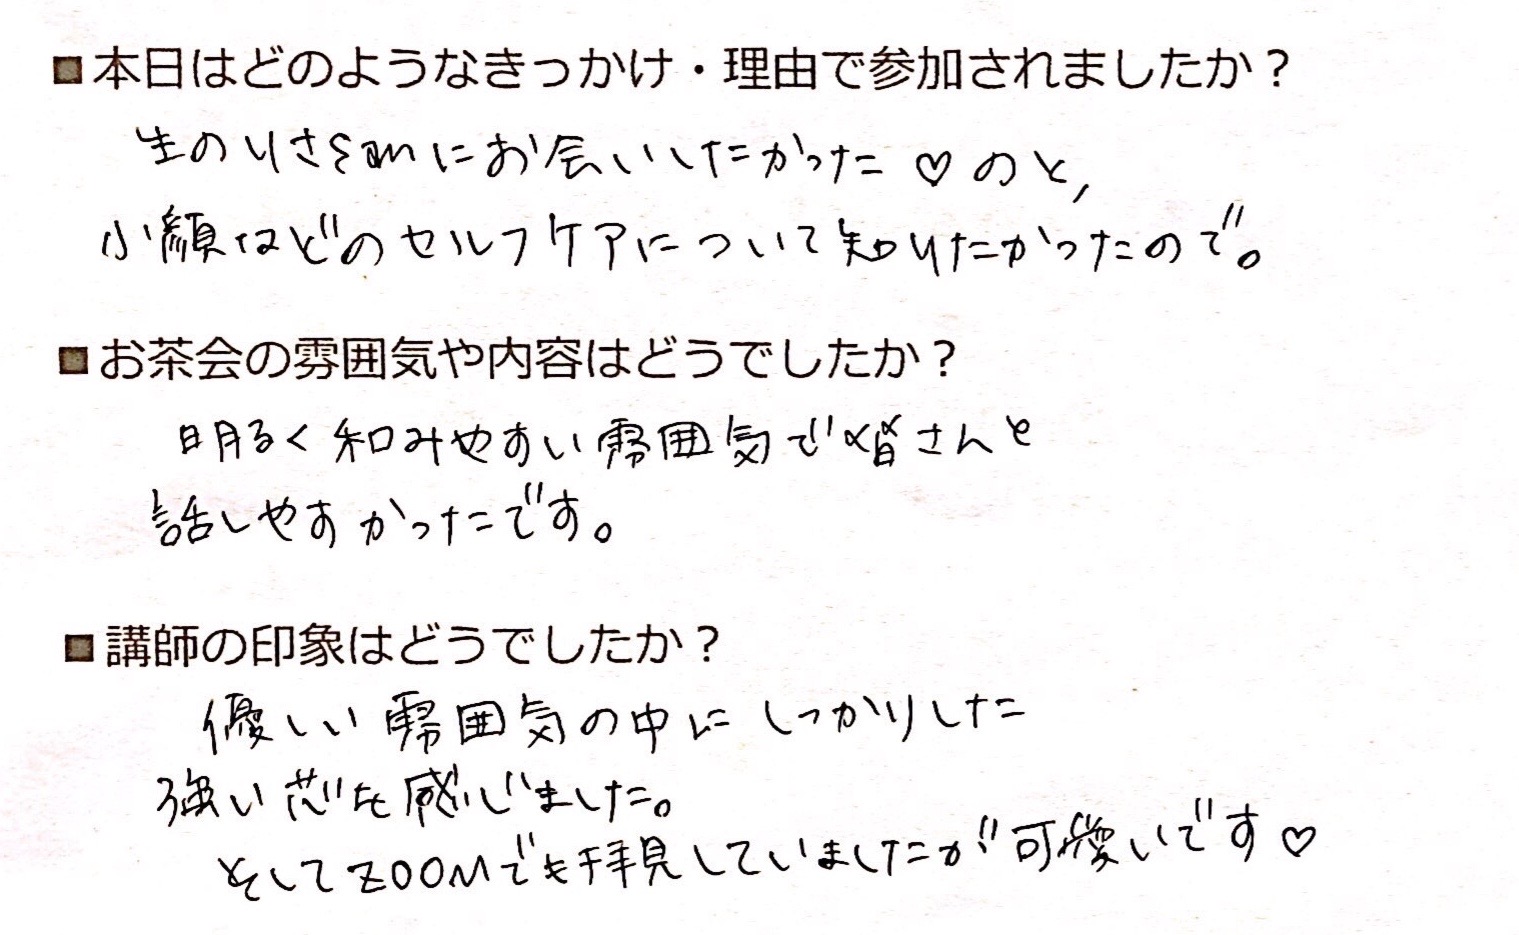 ■本日はどのようなきっかけ・理由で参加されましたか？
生のりさにお会いしたかった♡のと,
小顔などのセルフケアについて知りたかったので。
■お茶会の雰囲気や内容はどうでしたか？
明るく和みやすい雰囲気で皆さんと
話しやすかったです。
■講師の印象はどうでしたか？
優しい雰囲気の中にしっかりした
強い芯を感じました。
そしてZOOMでも拝見していましたが可愛いです♡